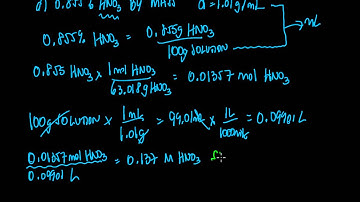 d) 0.855% HNO3 by mass d = 1.01g/mL
0.855% HNO3 = 0.855g HNO3 / 100g solution → mL
0.855 HNO3 × 1 mol HNO3 / 63.018g HNO3 = 0.01357 mol HNO3
100g solution × 1mL / 1.01g = 99.01mL × 1L / 1000mL = 0.09901 L
0.01357 mol HNO3 / 0.09901 L = 0.137 M HNO3